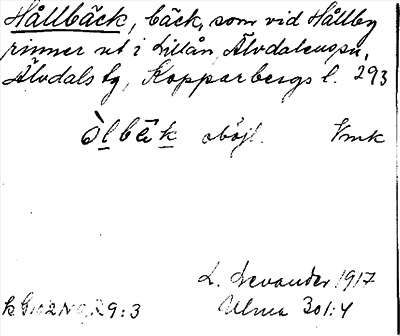 Hållbäck, bäck, som vid Hållby
rinner ut i Lillån, Älvdalens sn,
Älvdals tg, Kopparbergs l. 293
òlbäk obójl. Vmk
L. Levander 1917
Ulma 301:4
9:3